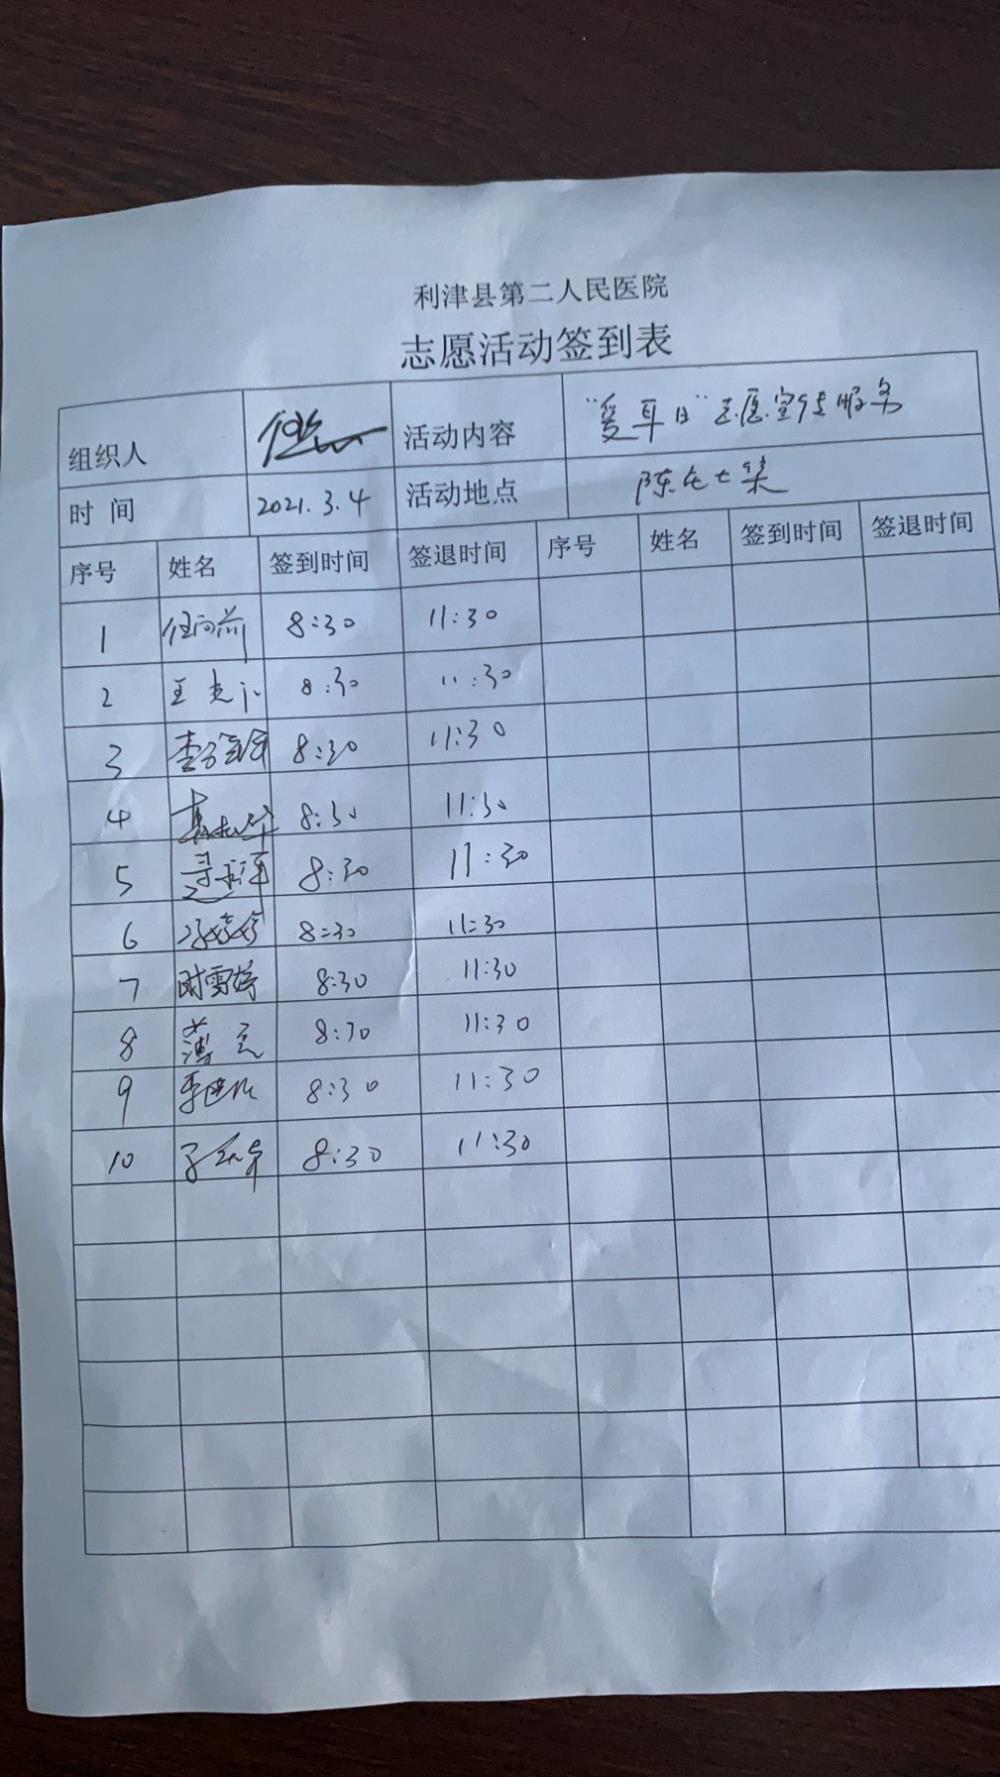 利津县第二人民医院
志愿活动签到表
组织人 活动内容 "爱耳日"志愿宣传服务
时 间 2021.3.4 活动地点 陈庄大集
序号 姓名 签到时间 签退时间 序号 姓名 签到时间 签退时间
1 任向前 8:30 11:30
2 王 8:30 11:30
3 8:30 11:30
4 8:30 11:30
5 8:30 11:30
6 冯婷婷 8:30 11:30
7 时雪婷 8:30 11:30
8 薄 8:30 11:30
9 李 8:30 11:30
10 8:30 11:30